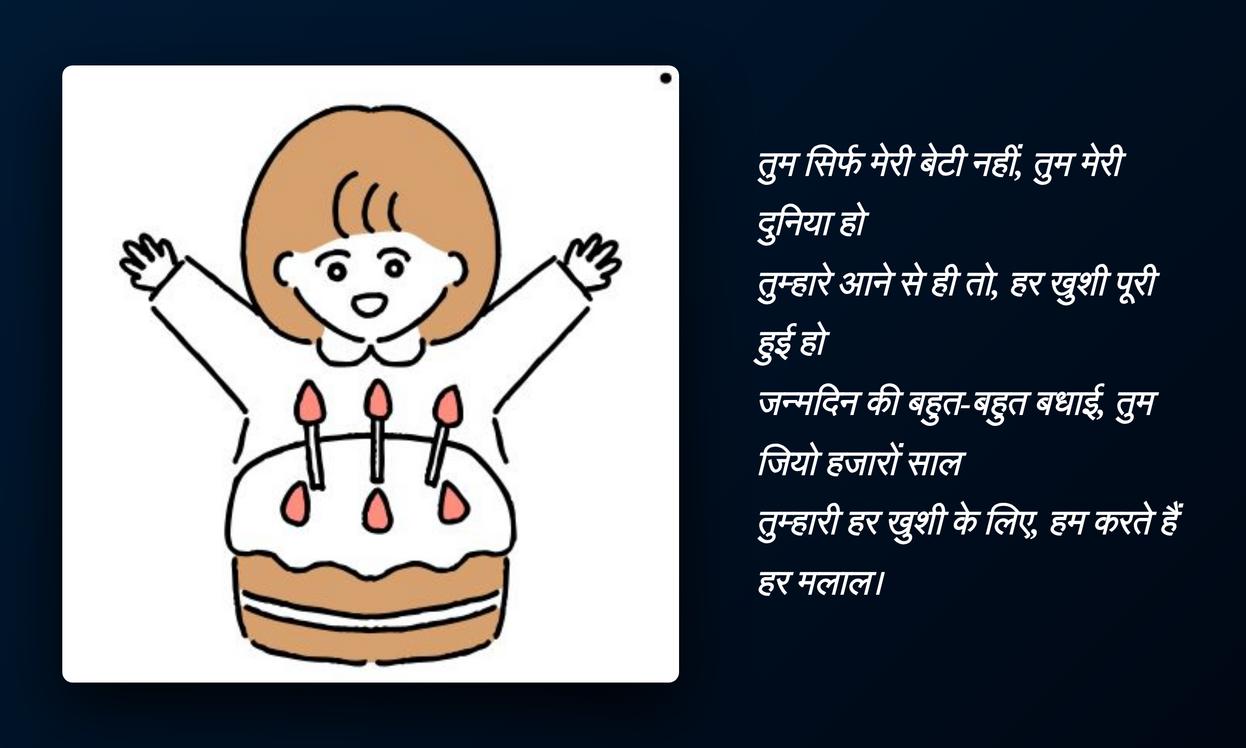 तुम सिर्फ मेरी बेटी नहीं, तुम मेरी
दुनिया हो
तुम्हारे आने से ही तो, हर खुशी पूरी
हुई हो
जन्मदिन की बहुत-बहुत बधाई, तुम
जियो हजारों साल
तुम्हारी हर खुशी के लिए, हम करते हैं
हर मलाल।